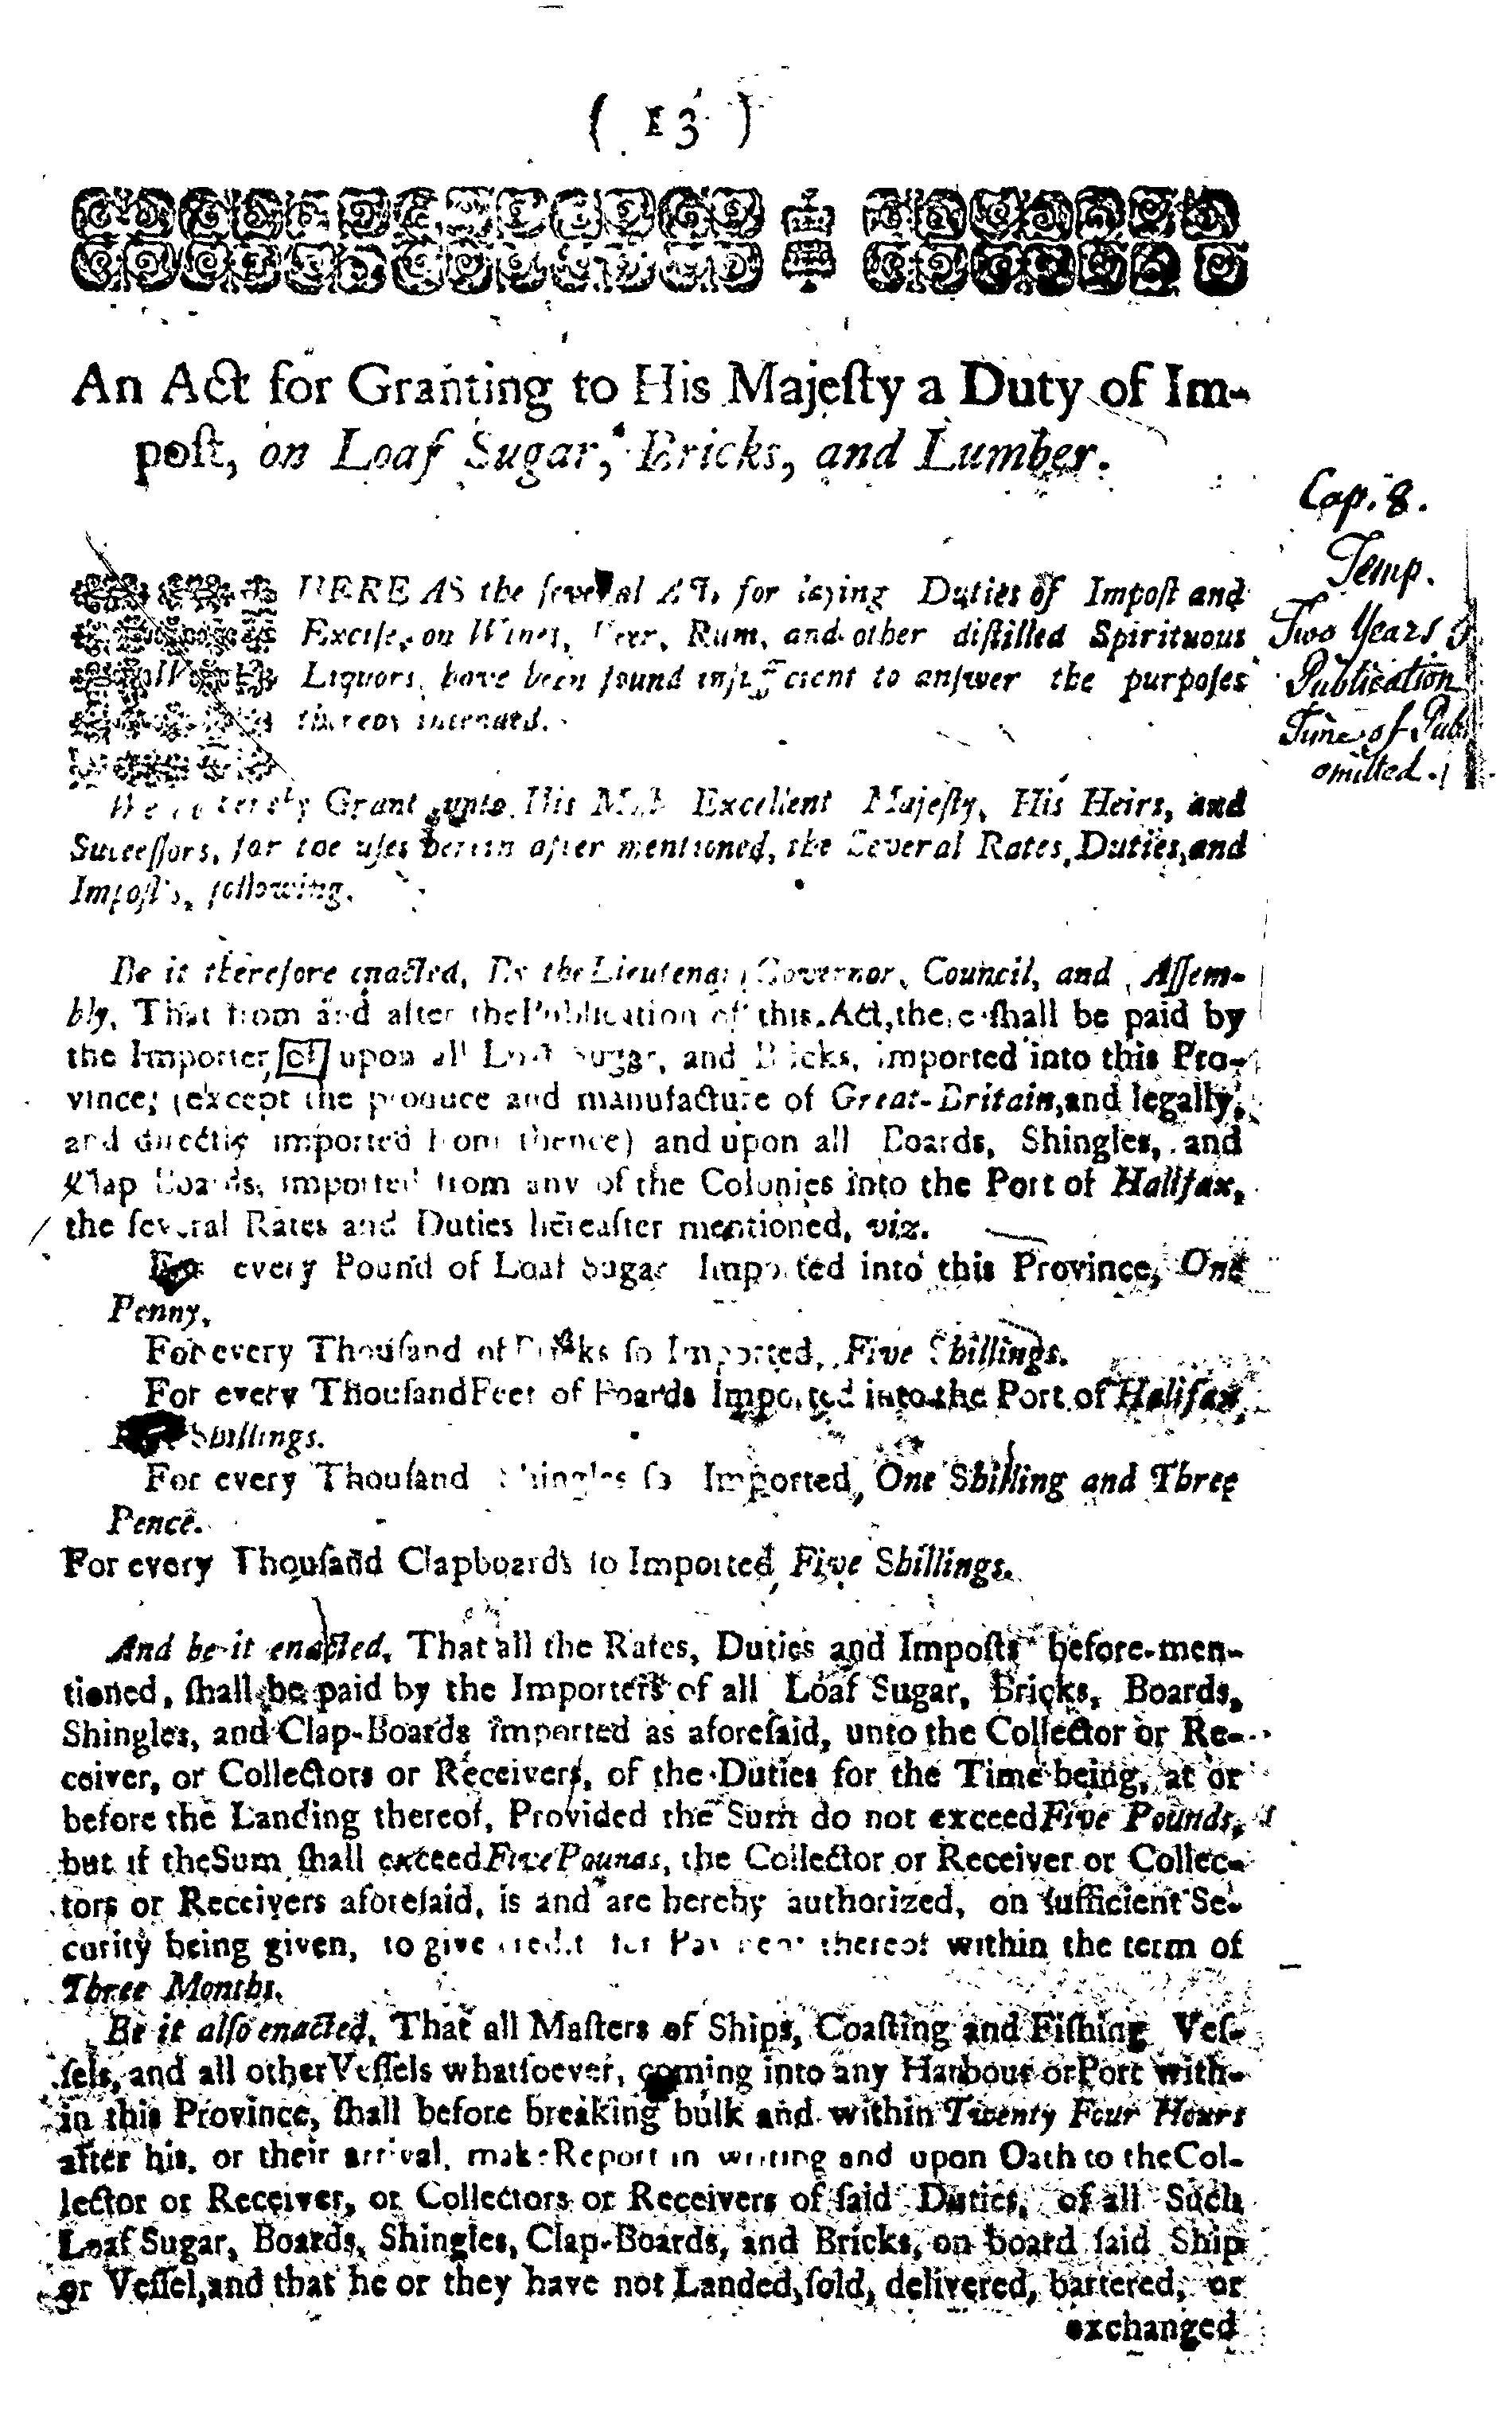 ( 13 )
An Act for Granting to His Majeſty a Duty of Im-
poſt, on Loaf Sugar, Bricks, and Lumber.
Cap. 8.
Temp.
Two Years
Publication
Time of Pub
omitted.
WHEREAS the ſeveral Acts for laying Duties of Impoſt and
Exciſe, on Wines, Beer, Rum, and other diſtilled Spirituous
Liquors, have been found inſufficient to anſwer the purpoſes
thereby intended.
We do hereby Grant unto His Moſt Excellent Majeſty, His Heirs, and
Succeſſors, for the uſes herein after mentioned, the Several Rates, Duties, and
Impoſts, following.
Be it therefore enacted, By the Lieutenant Governor, Council, and Aſſem-
bly, That from and after the Publication of this Act, there ſhall be paid by
the Importer, of upon all Loaf Sugar, and Bricks, imported into this Pro-
vince; (except the produce and manufacture of Great-Britain, and legally,
and directly imported from thence) and upon all Boards, Shingles, and
Clap Boards, imported from any of the Colonies into the Port of Halifax,
the ſeveral Rates and Duties hereafter mentioned, viz.
For every Pound of Loaf Sugar Imported into this Province, One
Penny.
For every Thouſand of Bricks ſo Imported, Five Shillings.
For every Thouſand Feet of Boards Imported into the Port of Halifax,
Shillings.
For every Thouſand Shingles ſo Imported, One Shilling and Three
Pence.
For every Thouſand Clapboards ſo Imported, Five Shillings.
And be it enacted, That all the Rates, Duties and Impoſts before-men-
tioned, ſhall be paid by the Importers of all Loaf Sugar, Bricks, Boards,
Shingles, and Clap-Boards imported as aforeſaid, unto the Collector or Re-
ceiver, or Collectors or Receivers, of the Duties for the Time being, at or
before the Landing thereof, Provided the Sum do not exceed Five Pounds,
but if the Sum ſhall exceed Five Pounds, the Collector or Receiver or Collec-
tors or Receivers aforeſaid, is and are hereby authorized, on ſufficient Se-
curity being given, to give credit for Payment thereof within the term of
Three Months.
Be it alſo enacted, That all Maſters of Ships, Coaſting and Fiſhing Veſ-
ſels, and all other Veſſels whatſoever, coming into any Harbour or Port with-
in this Province, ſhall before breaking bulk and within Twenty Four Hours
after his, or their arrival, make Report in writing and upon Oath to the Col-
lector or Receiver, or Collectors or Receivers of ſaid Duties, of all Such
Loaf Sugar, Boards, Shingles, Clap-Boards, and Bricks, on board ſaid Ship
or Veſſel, and that he or they have not Landed, ſold, delivered, bartered, or
exchanged